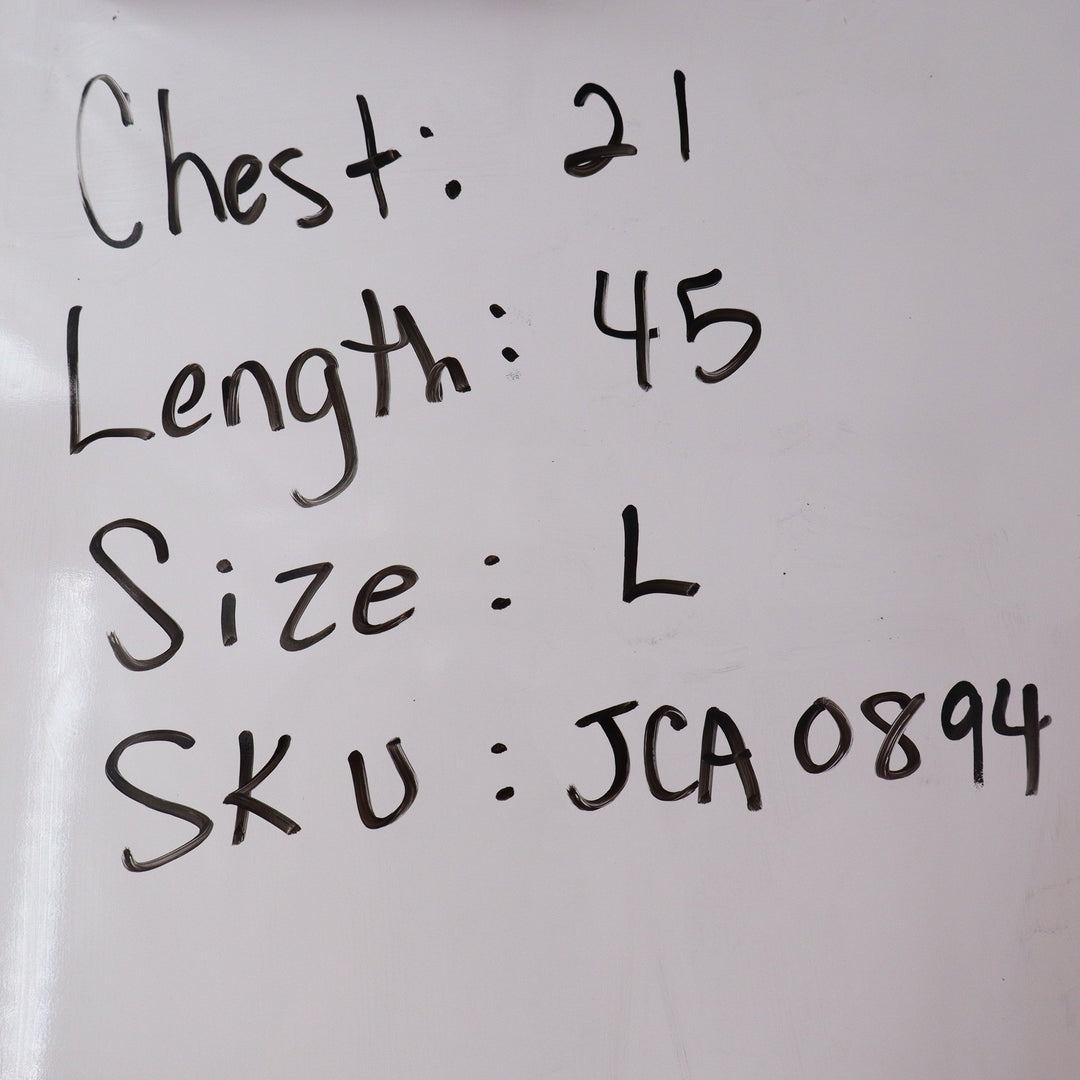 Chest: 21
Length: 45
Size: L
SKU: JCA 0894